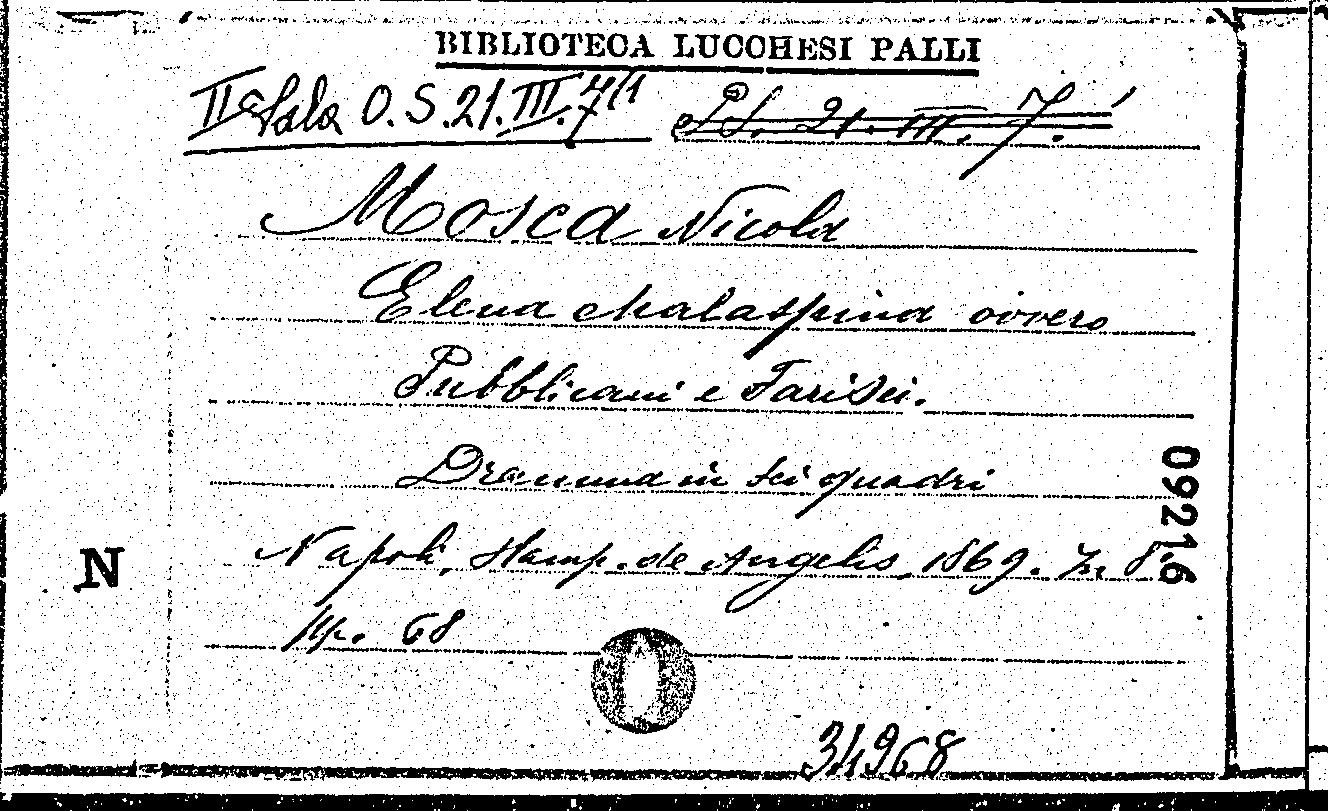 BIBLIOTECA LUCCHESI PALLI
IIª Sala O. S. 21. III. 7/1
Mosca Nicola
Elena Malaspina ovvero
Pubblicani e Farisei.
Dramma in sei quadri
Napoli, Stamp. de Angelis, 1869. In 8º
pp. 68
N
09216
34968